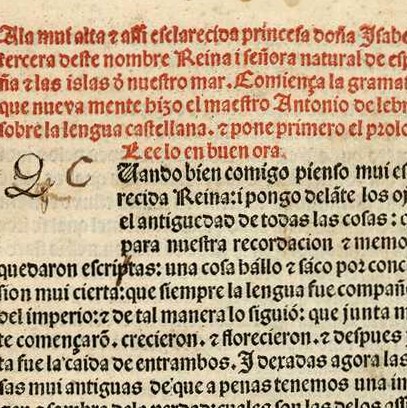 A la mui alta ⁊ assi esclarecida princesa doña Isabe
tercera deste nombre Reina i señora natural de esp
ña ⁊ las islas ð nuestro mar. Comiença la grama
que nueva mente hizo el maestro Antonio de lebr
sobre la lengua castellana. ⁊ pone primero el prolo
Lee lo en buen ora.
Q C Uando bien comigo pienso mui es
recida Reina: i pongo delãte los oj
el antiguedad de todas las cosas: q
para nuestra recordacion ⁊ memo
quedaron escriptas: una cosa hállo ⁊ sáco por conc
sion mui cierta: que siempre la lengua fue compañe
del imperio: ⁊ de tal manera lo siguió: que junta m
te començarõ. crecieron. ⁊ florecieron. ⁊ despues j
ta fue la caida de entrambos. I dexadas agora las
sas mui antiguas de que a penas tenemos una im